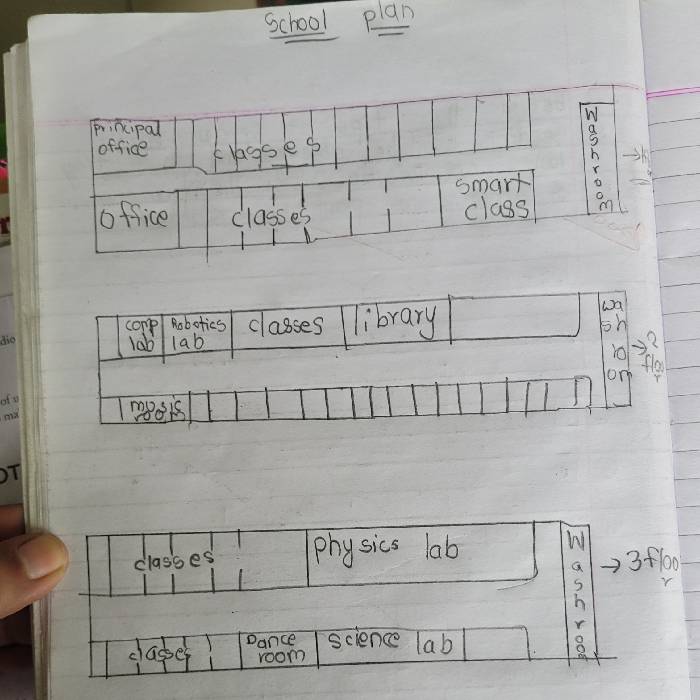 School plan
Principal
office
classes
office
classes
smart
class
Washroom
comp
lab
Robotics
lab
classes
library
wa
sh
ro
om
→ 2
floo
r
classes
physics lab
Washroom
→ 3 floo
r
classes
Dance
room
science lab